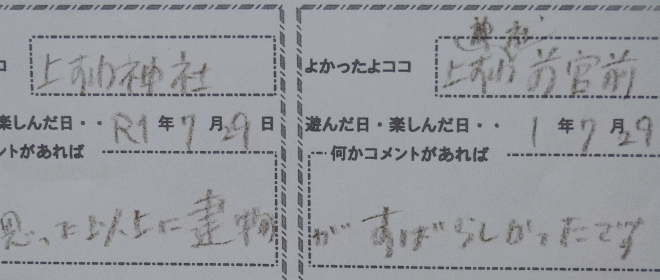 コ 上すわ神社
楽しんだ日・・ R1 年 7 月 29 日
ントがあれば
思った以上に建物
よかったよココ 上すわ 神社 前宮前
遊んだ日・楽しんだ日・・ 1 年 7 月 29
何かコメントがあれば
がすばらしかったです